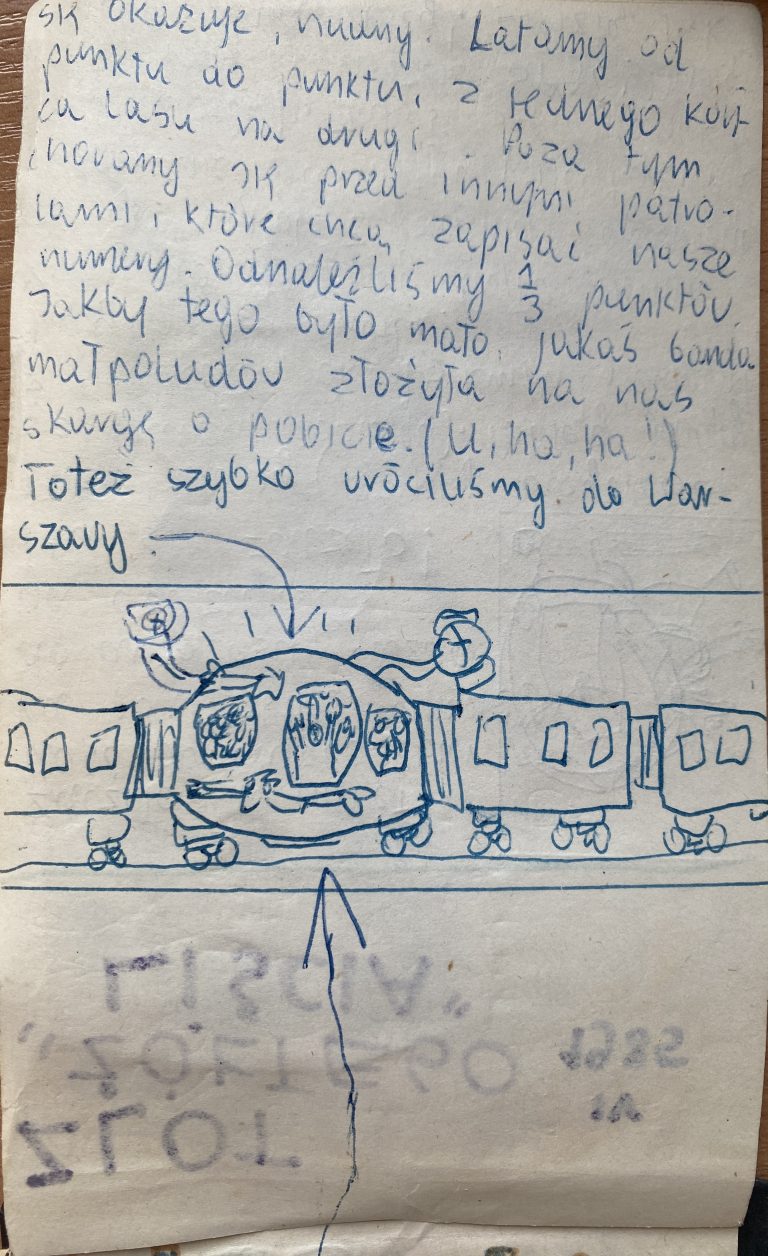 się okazuje, nudny. Latamy od
punktu do punktu, z jednego koń-
ca lasu na drugi. Poza tym
chowamy się przed innymi patro-
lami, które chcą zapisać nasze
numery. Odnaleźliśmy 1/3 punktów.
Jakby tego było mało, jakaś banda
małpoludów złożyła na nas
skargę o pobicie. (U, ha, ha!)
Toteż szybko wróciliśmy do War-
szawy.
ZLOT
„ŻÓŁTEGO
LIŚCIA"
1985